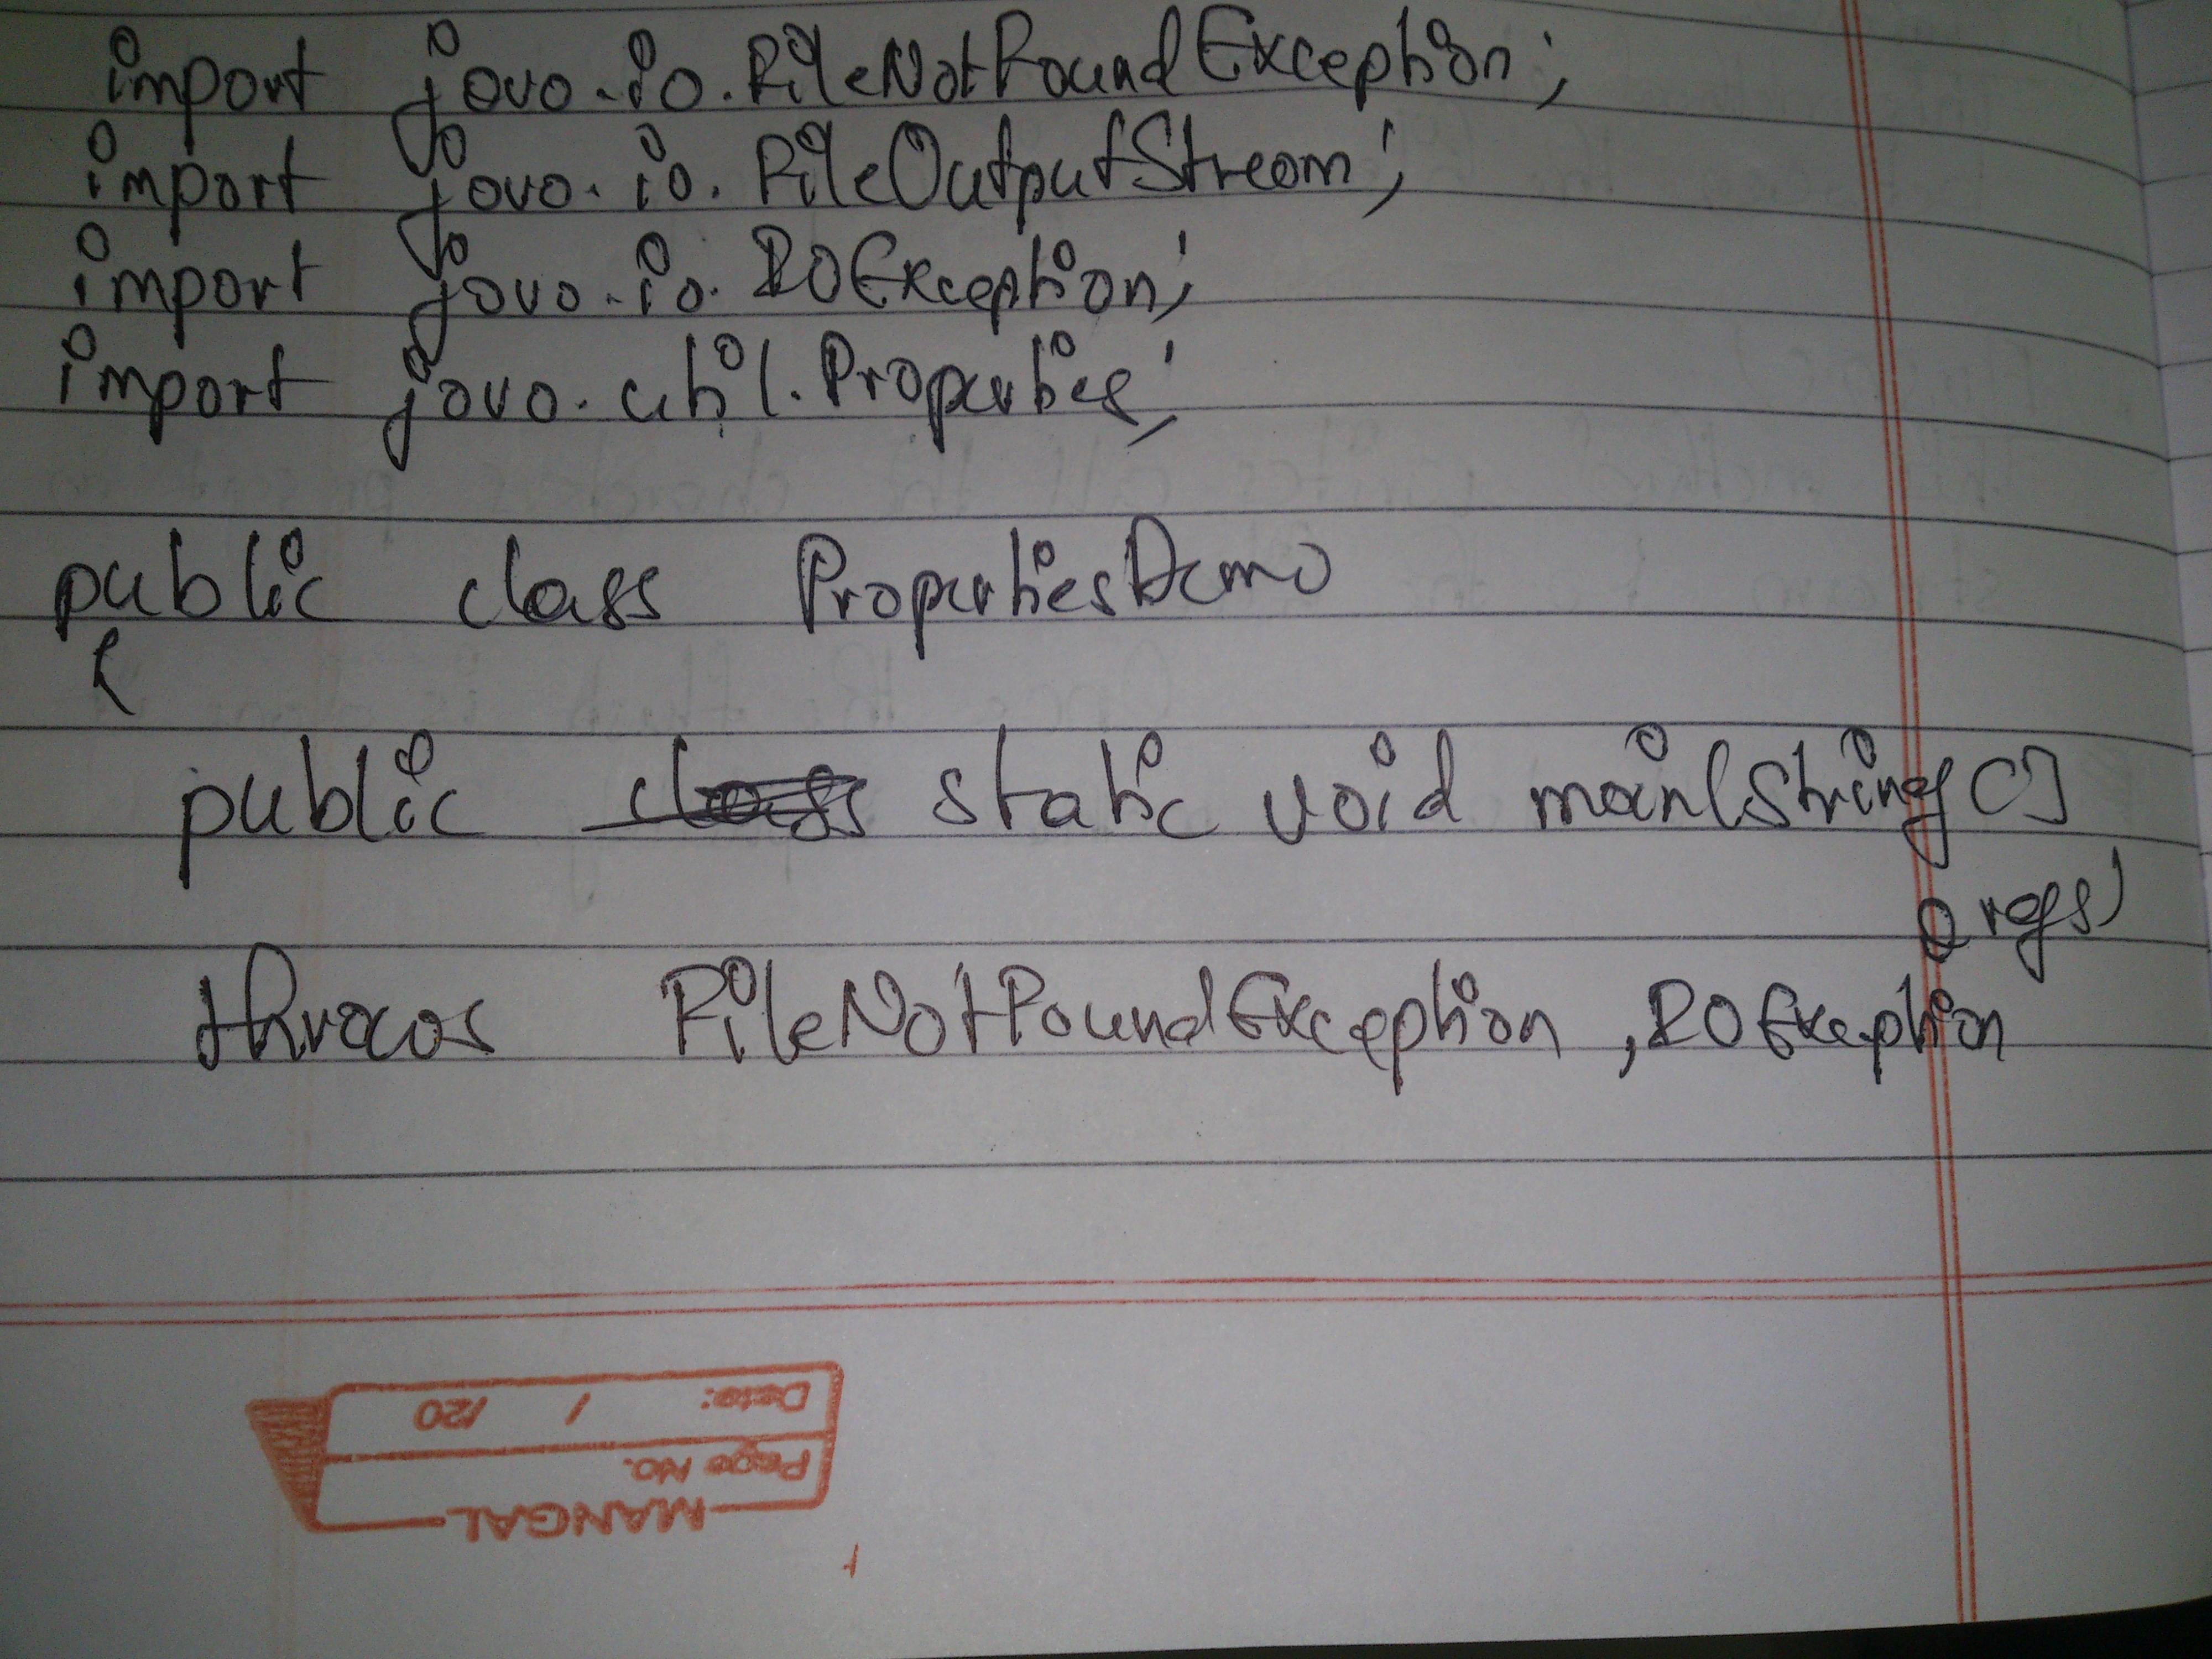 import java.io.FileNotFoundException;
import java.io.FileOutputStream;
import java.io.IOException;
import java.util.Properties;
public class PropertiesDemo
{
public class static void main(String []
args)
throws FileNotFoundException, IOException
Date: / /20
Page No.
MANGAL